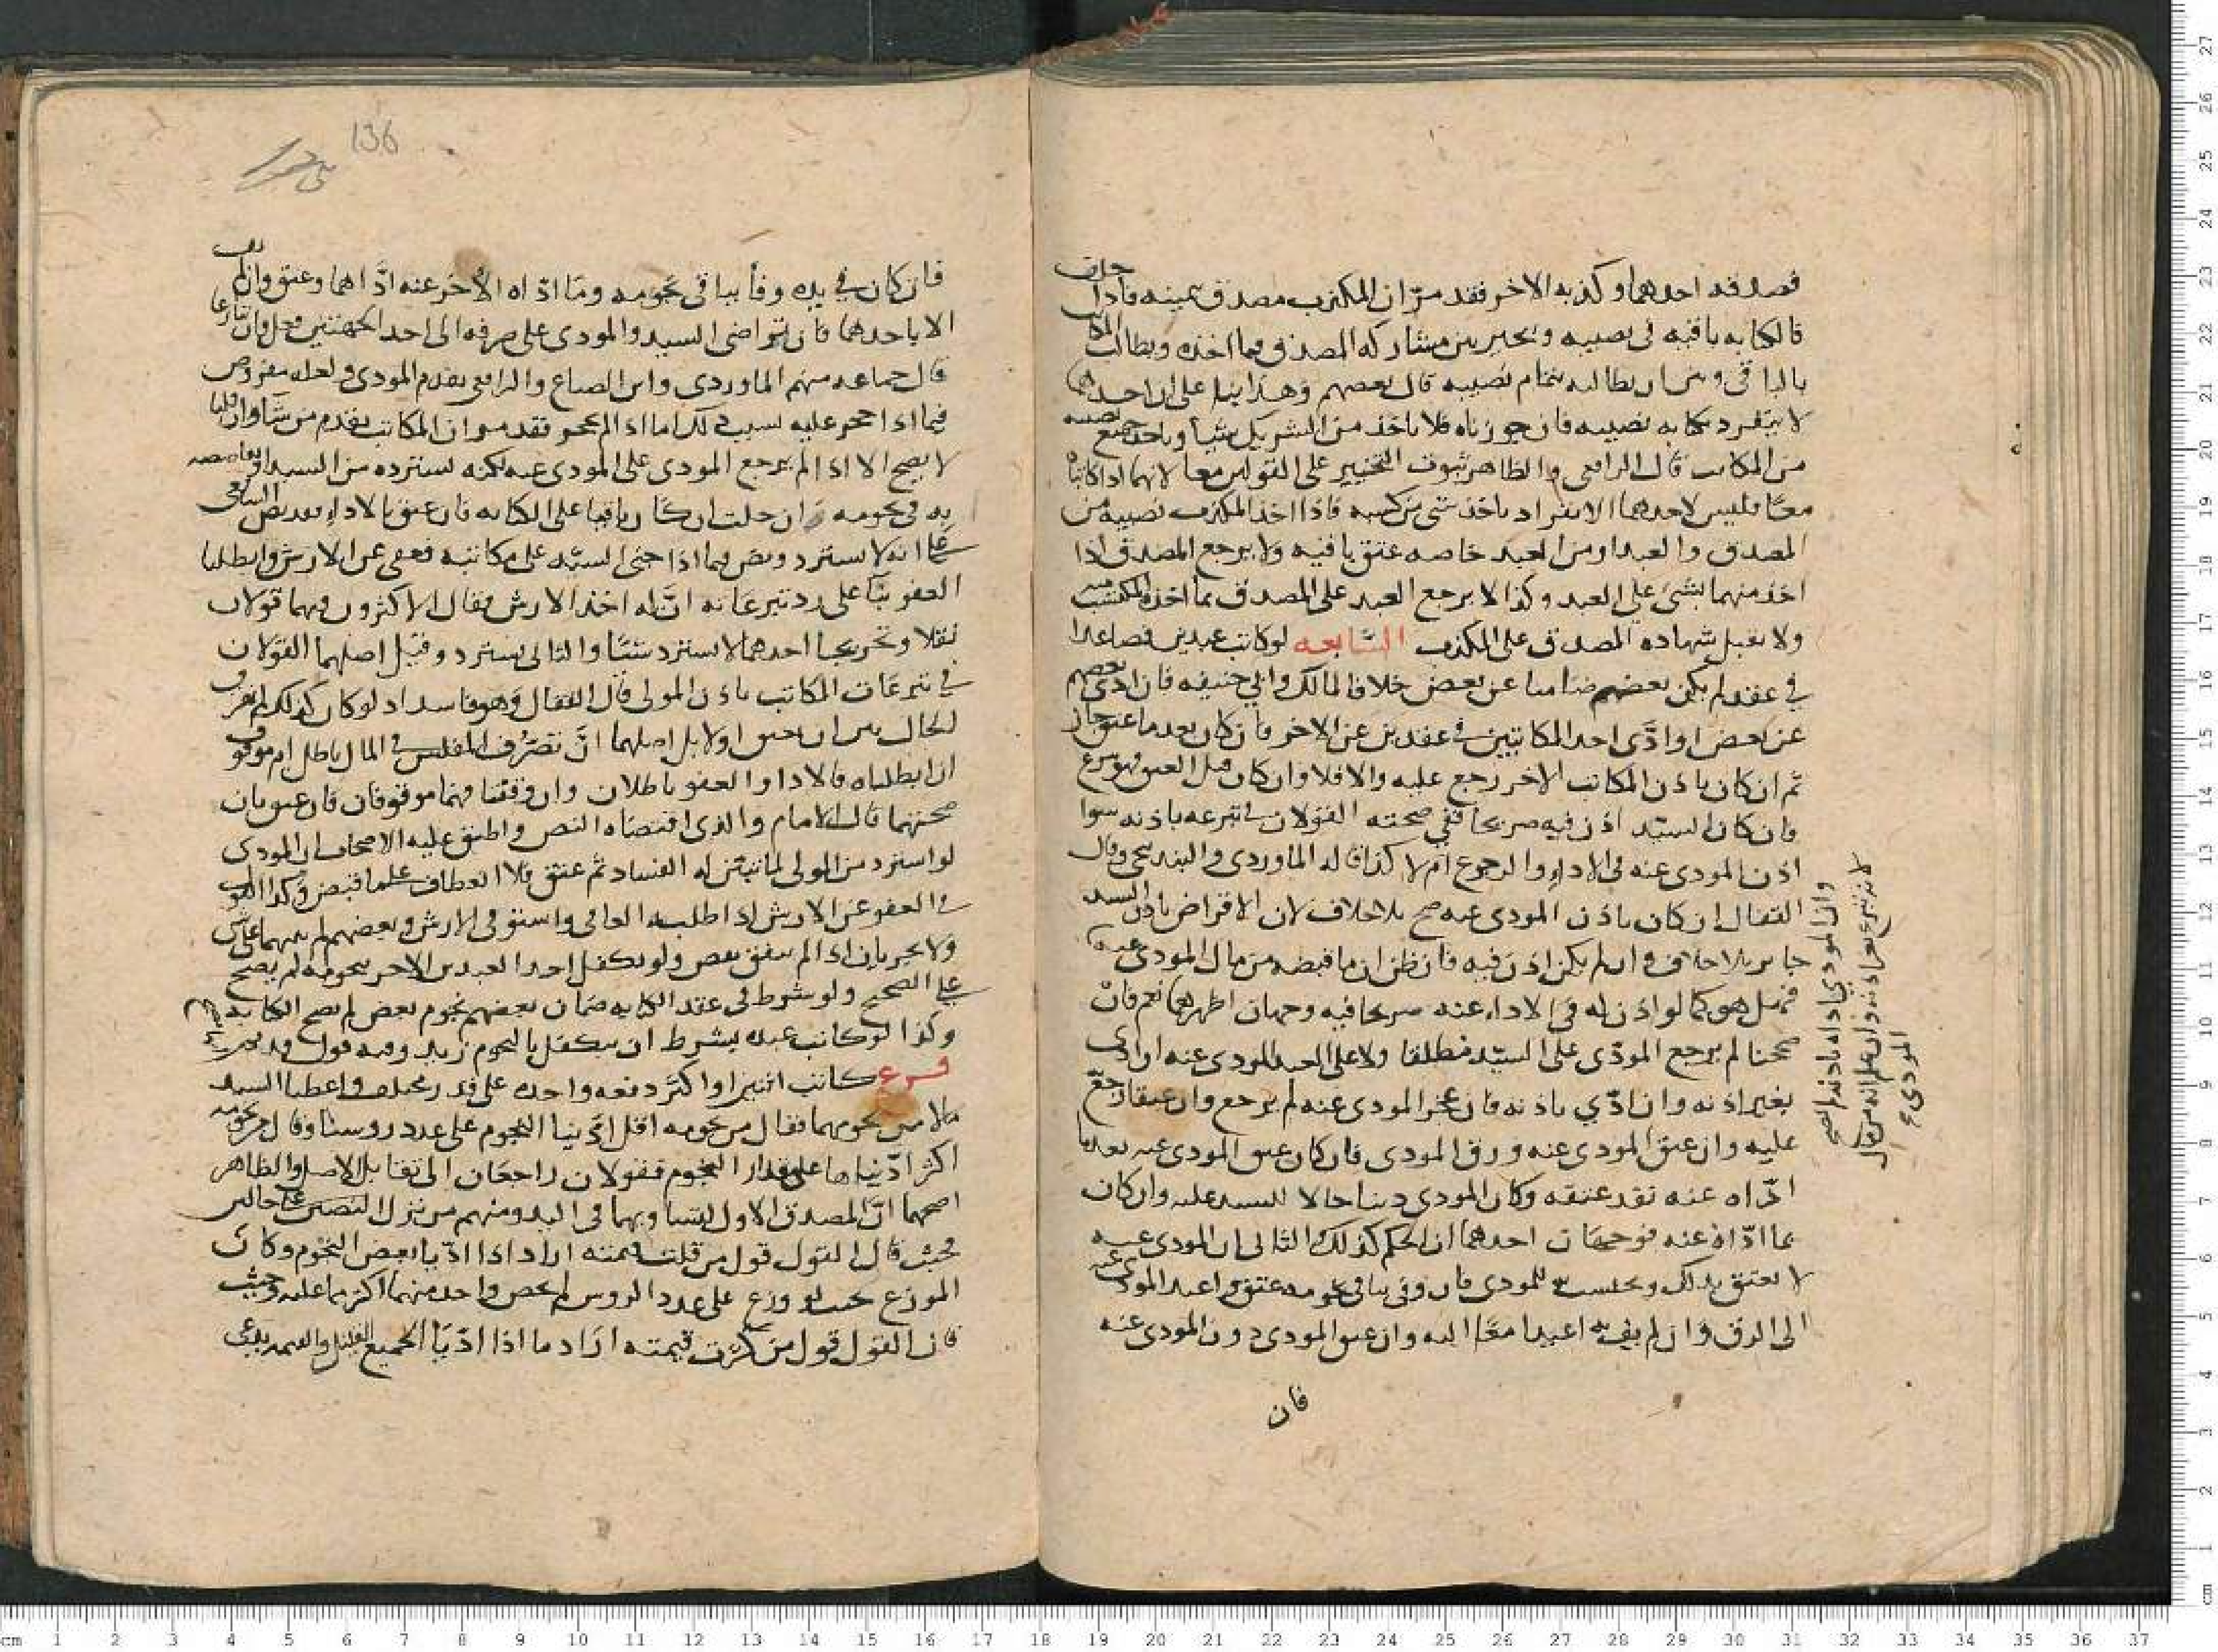 فصدقه احدهما وكذبه الاخر فقد مرّ ان المكذب مصدق بيمينه فاذا حلف
فالكتابه باقيه في نصيبه ويخير بين مشاركه المصدق فيما اخذه ويطالب المكاتب
بالباقي وبين ان يطالبه بتمام نصيبه قال بعضهم وهذا بنا على ان احدهما
لا ينفرد بكتابه نصيبه فان جوزناه فلا ياخذ من الشريك شيأ وياخذ جميع نصيبه
من المكاتب قال الرافعي والظاهر ثبوت التخيير على القولين معا لانهما اذا كاتباه
معًا فليس لاحدهما الانفراد باخذ شي من كسبه فاذا اخذ المكذب نصيبه من
المصدق والعبد او من العبد خاصه عتق باقيه ولا يرجع المصدق اذا
اخذ منهما بشئ على العبد وكذا لا يرجع العبد على المصدق بما اخذه المكذب منه
ولا تقبل شهاده المصدق على المكذب السابعه لو كاتب عبدين فصاعدا
في عقد لم يكن بعضهم ضامنا عن بعض خلافا لمالك وابي حنيفه فان ادى بعضهم
عن بعض او ادّى احد المكاتبين في عقدين عن الاخر فان كان بعد ما عتق جاز
ثم ان كان باذن المكاتب الاخر رجع عليه والا فلا وان كان قبل العتق فهو تبرع
فان كان السيّد اذن فيه صريحا ففي صحته القولان في تبرعه باذنه سوا
اذن المودى عنه في الاداء والرجوع ام لا كذا قاله الماوردي والبندنيجي وقال
القفال ان كان باذن المودى عنه صح بلا خلاف لان الاقراض باذن السيد
جايز بلا خلاف وان لم يكن اذن فيه فان ظن ان ما قبضه من مال المودى عنه
فهل هو كما لو اذن له في الاداء عنه صريحا فيه وجهان اظهرهما نعم فان
صححنا لم يرجع المودّى على السيّد مطلقا ولا على العبد المودى عنه ان ادى
بغير اذنه وان ادّي باذنه فان عجز المودى عنه لم يرجع وان عتقا رجع
عليه وان عتق المودى عنه ورق المودى فان كان عتق المودى عنه بعد ما
ادّاه عنه نفد عتقه وكان المودى دينا حالا للسيد عليه وان كان
بما ادّاه عنه فوجهان احدهما ان الحكم كذلك الثاني ان المودى عنه
لا يعتق بذلك ويحتسب للمودى فان وفى بباقي نجومه عتق واعيد المودى عنه
الى الرق وان لم يف به اعيدا معًا اليه وان عتق المودى دون المودى عنه
فان
وان المودي اداه باذنه لم يصح
لانه تبرع بغير اذنه وان علم انه من مال
المودى
136
فان كان في يده وفأ بباقي نجومه وما ادّاه الاخر عنه ادّاهما وعتق وان لم يف
الا باحدهما فان تراضى السيد والمودى على صرفه الى احد الجهتين فعل وان تنازعا
قال جماعه منهم الماوردى وابن الصباغ والرافعي يقدم المودى ولعله مفروض
فيما اذا حجر عليه لسبب ذلك اما اذا لم يحجر فقد مر ان المكاتب يقدم من شا وان قلنا
لا يصح الاداء لم يرجع المودى على المودى عنه لكنه يسترده من السيد او يقاصصه
به في نجومه ان حلت ان كان باقيا على الكتابه فان عتق بالاداء فقد نص الشافعي
على انه لا يسترد ونص فيما اذا جنى السيّد على مكاتبه فعفى عن الارش وابطلنا
العفو بنًا على رد تبرعاته انّ له اخذ الارش فقال الاكثرون فيهما قولان
نقلا وتخريجا احدهما لا يسترد شئًا والثاني يسترد وقيل اصلهما القولان
في تبرعات المكاتب باذن المولى قال القفال وهو فاسد اذ لو كان كذلك لم يفترق
الحال بين ان يعتق اولا بل اصلهما انّ تصرّف المفلس في المال باطل ام موقوف
ان ابطلناه فالادا والعفو باطلان وان وقفنا فهما موقوفان فان عتق بان
صحتهما قال الامام والذى اقتضاه النص واطبق عليه الاصحاب ان المودى
لو استرد من المولى لما تبيّن له الفساد ثم عتق فلا انعطاف على ما قبض وكذا القول
في العفو عن الارش اذا طلبه العافي واستوفى الارش وبعضهم لم
ولا يجريان اذا لم يتفق بعض ولو تكفل احد العبدين الاخر بنجومه لم يصح
على الصحيح ولو شرط في عقد الكتابه ضمان بعضهم نجوم بعض لم تصح الكتابه
وكذا لو كاتب عبده بشرط ان يتكفل بالنجوم زيد وفيه قول قديم
فرع كاتب اثنين او اكثر دفعه واحده على قدر مختلف واعطيا السيد
مالا من نجومهما فقال من نجومه اقل ادّينا النجوم على عدد روسنا وقال من نجومه
اكثر ادّيناها على مقدار النجوم فقولان راجعان الى تقابل الاصل والظاهر
اصحهما انّ المصدق الاول لتساويهما في اليد ومنهم من نزل النصين على حالين
فحيث قال القول قول من قلت قيمته اراد اذا ادّيا بعض النجوم وكان
الموزع بحيث لو وزع على عدد الروس لم يخص واحد منهما اكثر مما عليه وحيث
قال القول قول من كثرت قيمته اراد ما اذا ادّيا الجميع